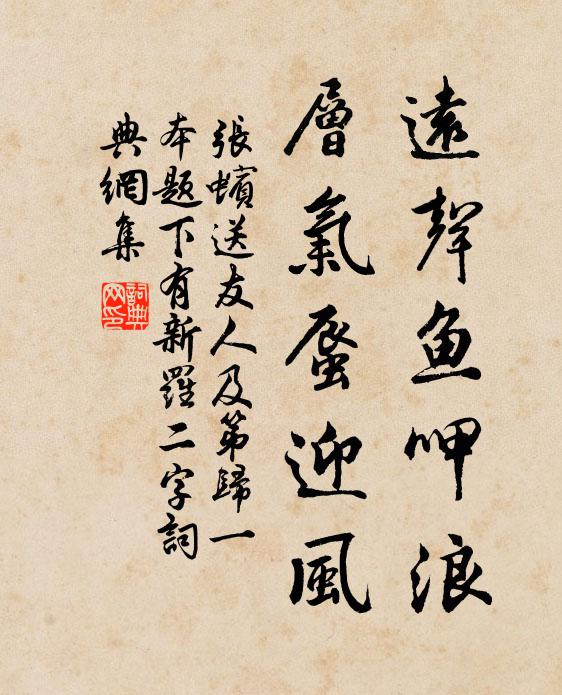 遠聲魚呷浪
層氣蜃迎風
張蠙送友人及第歸一
本題下有新羅二字詞
典網集
詞典網印